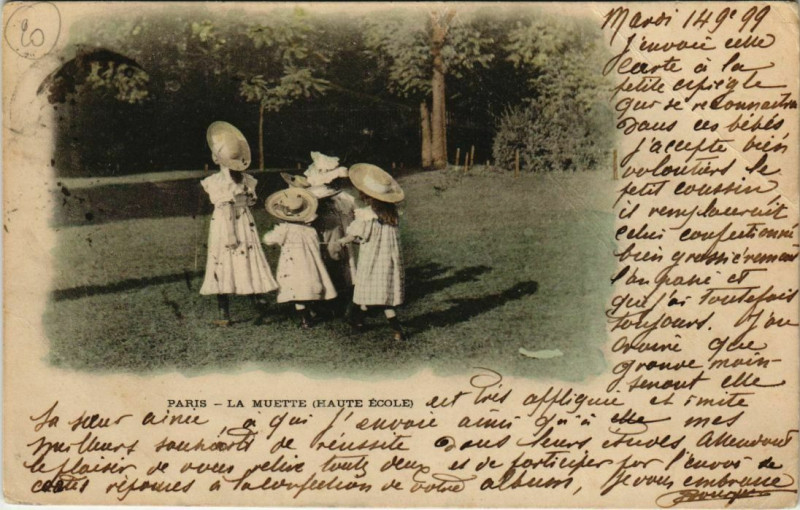 Mardi 14 9e 99
J'envoie cette
carte à la
petite espiègle
qui se reconnaitra
dans ces bébés
j'accepte bien
volontiers le
petit coussin,
il remplacerait
celui confectionné
bien grossièrement
l'an passé et
que j'ai toutefois
toujours.
croire que
mainte-
nant elle
PARIS - LA MUETTE (HAUTE ÉCOLE)
est très appliquée et imite
Sa sœur ainée à qui j'envoie ainsi qu'à elle mes
meilleurs souhaits de réussite dans leurs études Attendant
le plaisir de vous relire toutes deux et de participer par l'envoi de
cartes réponses à la confection de votre album, je vous embrasse